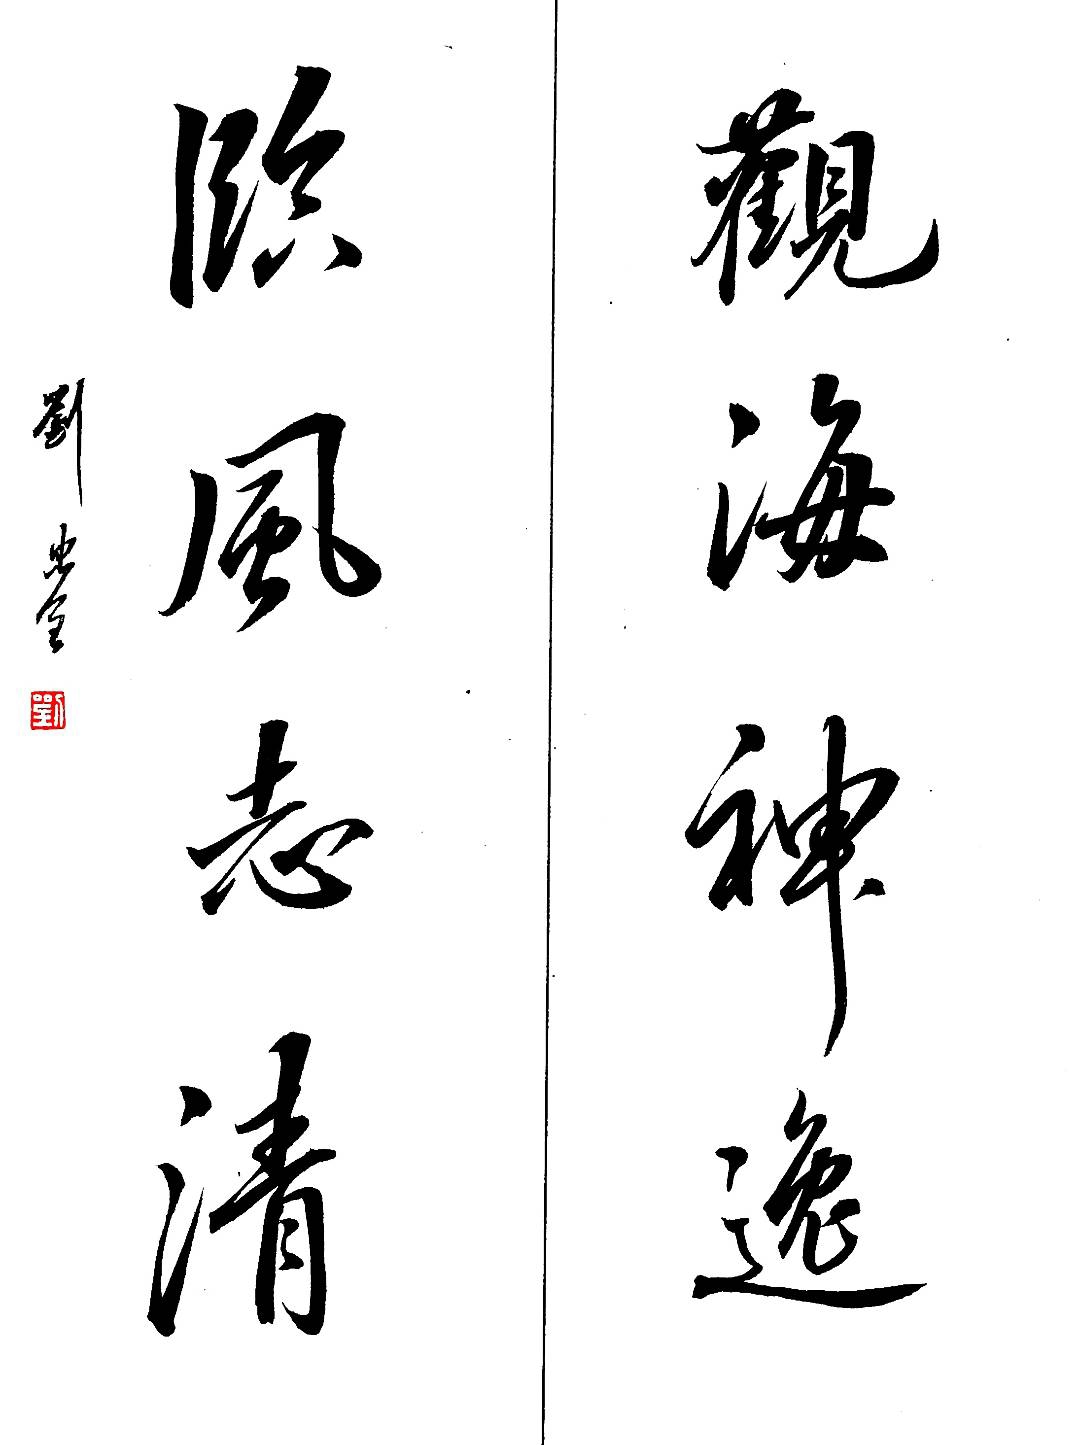 觀海神逸
臨風志清
劉忠全
劉